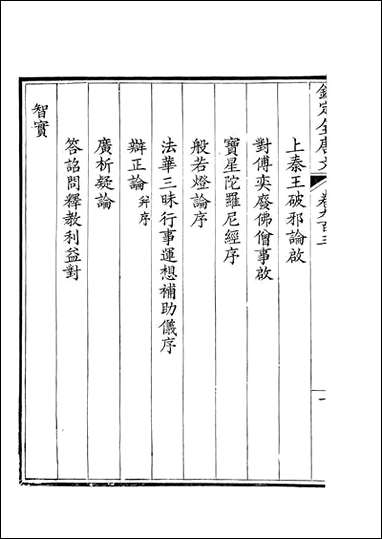 欽定全唐文 卷九百三 一
上秦王破邪論啟
對傅奕廢佛僧事啟
寶星陀羅尼經序
般若燈論序
法華三昧行事運想補助儀序
辯正論 并序
廣析疑論
答詔問釋教利益對
智實